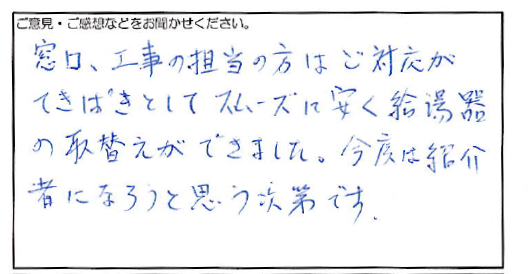 ご意見・ご感想などをお聞かせください。
窓口、工事の担当の方はご対応が
てきぱきとしてスムーズに安く給湯器
の取替えができました。今度は紹介
者になろうと思う次第です。